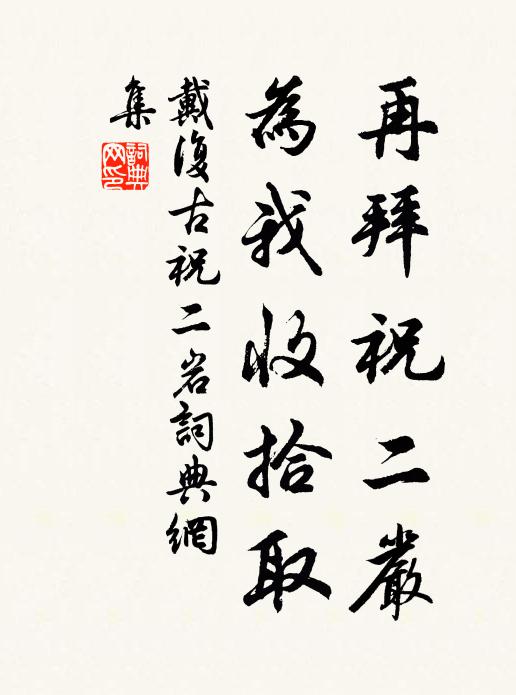 再拜祝二嚴
為我收拾取
戴復古祝二岩詞典網
集
詞典网印